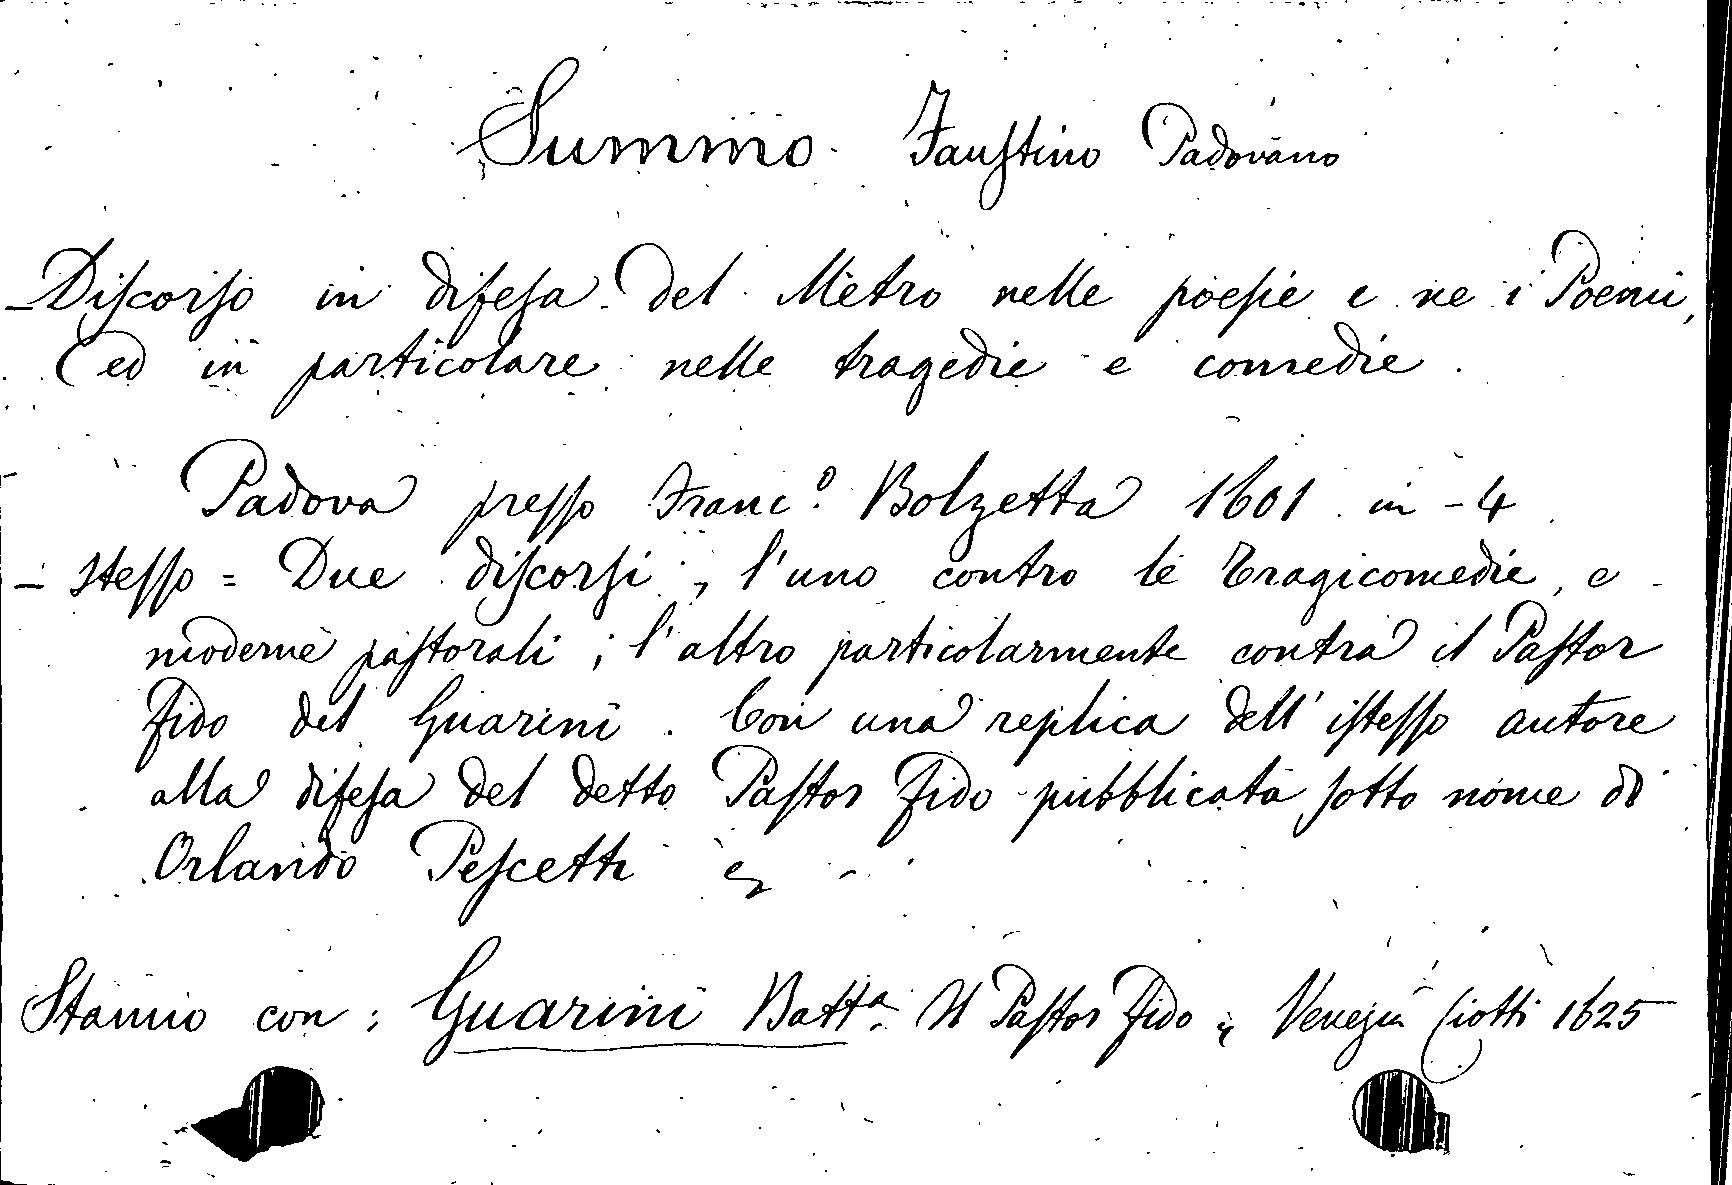 Summo Faustino Padovano
- Discorso in difesa del Metro nelle poesie e ne i Poemi,
ed in particolare nelle tragedie e comedie.
Padova presso Franc.º Bolzetta 1601 in-4
- Stesso = Due discorsi, l'uno contro le Tragicomedie, e
moderne pastorali; l'altro particolarmente contra il Pastor
fido del Guarini. Con una replica dell'istesso autore
alla difesa del detto Pastor fido pubblicata sotto nome di
Orlando Pescetti
Stanno con: Guarini Battª Il Pastor fido Venezia Ciotti 1625